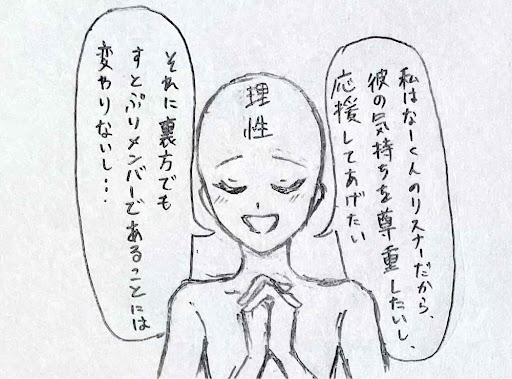 私はなーくんのリスナーだから、
彼の気持ちを尊重したいし、
応援してあげたい
理性
それに裏方でも
すとぷりメンバーであることには
変やりないし…